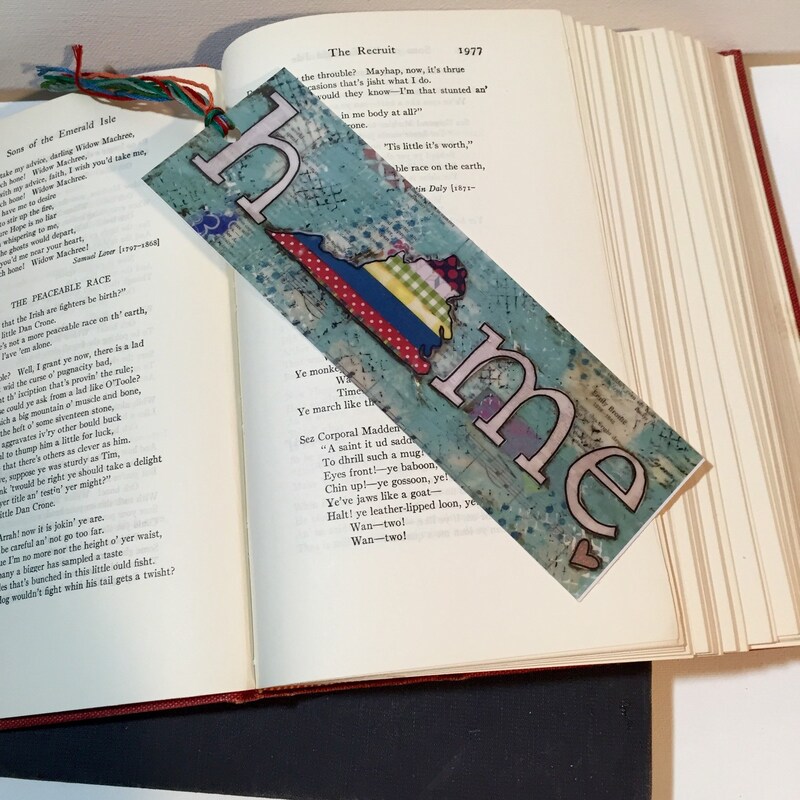 Sons of the Emerald Isle
take my advice, darling Widow Machree,
ch hone! Widow Machree.
with my advice, faith, I wish you'd take me,
ch hone! Widow Machree!
have me to desire
to stir up the fire,
ure Hope is no liar
whispering to me,
the ghosts would depart,
you'd me near your heart,
ch hone! Widow Machree!
Samuel Lover [1797-1868]
THE PEACEABLE RACE
that the Irish are fighters be birth?"
little Dan Crone.
e's not a more peaceable race on th' earth,
l'ave 'em alone.
ble? Well, I grant ye now, there is a lad
wid the curse o' pugnacity bad,
nt th' ixciption that's provin' the rule;
e could ye ask from a lad like O'Toole?
such a big mountain o' muscle and bone,
the heft o' some siventeen stone,
aggravates iv'ry other bould buck
to thump him a little for luck,
that there's others as clever as him.
ve, suppose ye was sturdy as Tim,
nk 'twould be right ye should take a delight
yer title an' testin' yer might?"
Dan Crone.
Arrah! now it is jokin' ye are.
be careful an' not go too far.
ue I'm no more nor the height o' yer waist,
many a bigger has sampled a taste
les that's bunched in this little ould fisht.
dog wouldn't fight whin his tail gets a twisht?
The Recruit 1977
the throuble? Mayhap, now, it's thrue
casions that's jisht what I do.
would they know—I'm that stunted an'
in me body at all?"
rone.
'Tis little it's worth,"
able race on the earth,
tin Daly [1871-
h me
Ye monke
Wa
Time
Ye march like the
Sez Corporal Madden
"A saint it ud sadd
To dhrill such a mug
Eyes front!—ye baboon,
Chin up!—ye gossoon, ye
Ye've jaws like a goat—
Halt! ye leather-lipped loon, ye
Wan—two!
Wan—two!